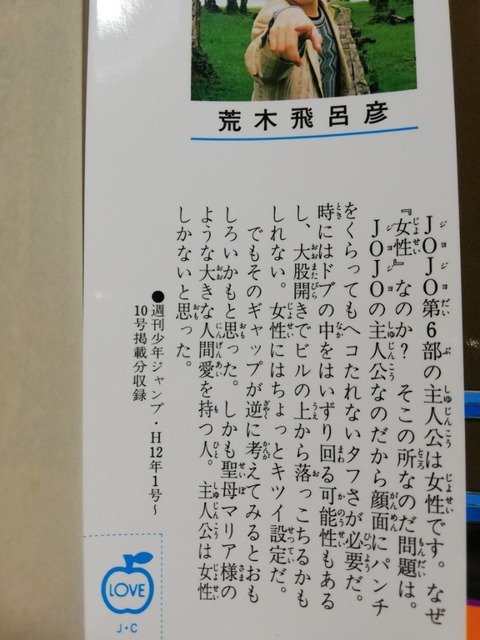 荒木飛呂彦
JOJO第6部の主人公は女性です。なぜ
『女性』なのか？ そこの所なのだ問題は。
JOJOの主人公なのだから顔面にパンチ
をくらってもヘコたれないタフさが必要だ。
時にはドブの中をはいずり回る可能性もある
し、大股開きでビルの上から落っこちるかも
しれない。女性にはちょっとキツイ設定だ。
でもそのギャップが逆に考えてみるとおも
しろいかもと思った。しかも聖母マリア様の
ような大きな人間愛を持つ人。主人公は女性
しかないと思った。
●週刊少年ジャンプ・H12年1号～
10号掲載分収録
LOVE
J・C